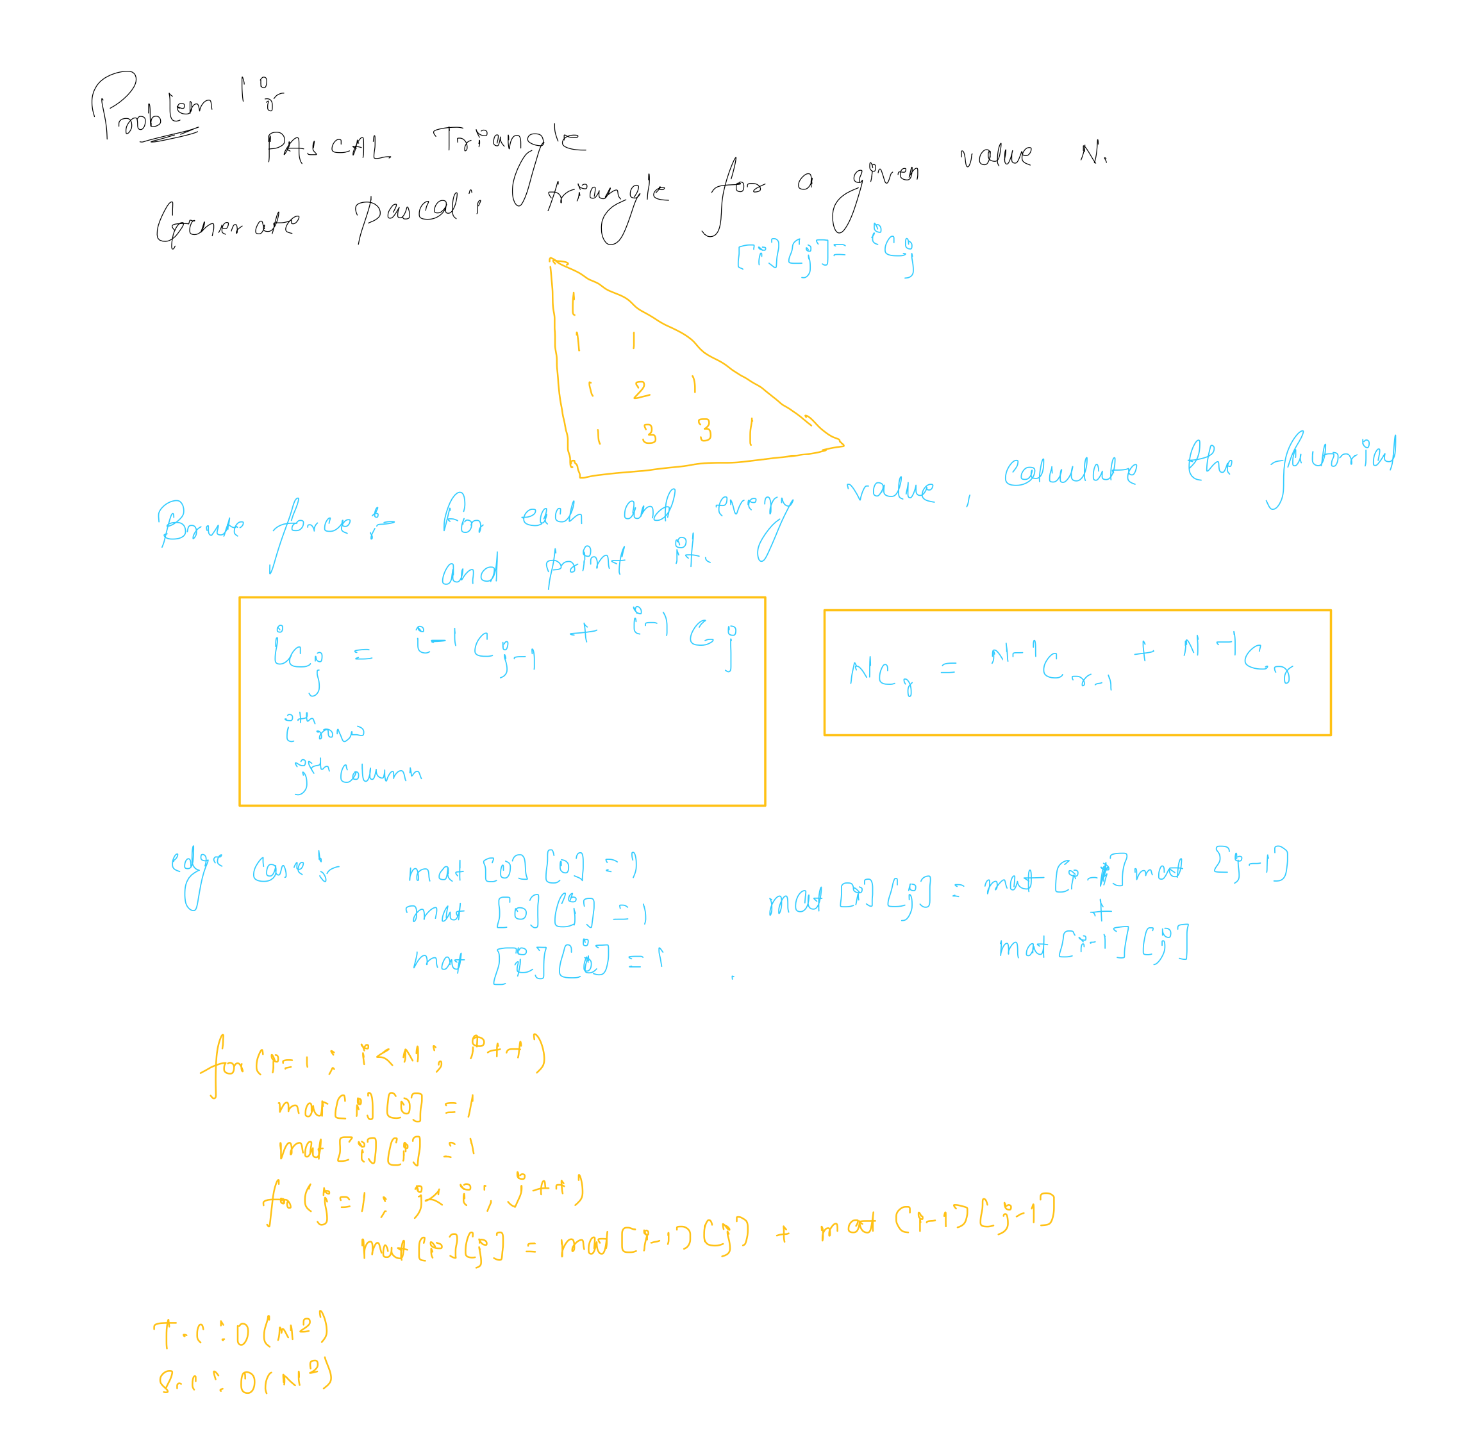 Problem 1:-
PASCAL Triangle
Generate pascal's triangle for a given value N.
[i][j] = iCj
1
1 1
1 2 1
1 3 3 1
Brute force :- For each and every value, calculate the factorial
and print it.
iCj = i-1Cj-1 + i-1Cj
ith row
jth column
NCr = N-1Cr-1 + N-1Cr
edge case :-
mat [0][0] = 1
mat [0][j] = 1
mat [i][i] = 1
mat [i][j] = mat [i-1] mat [j-1]
+
mat [i-1][j]
for (i=1; i<N; i++)
mat[i][0] = 1
mat [i][i] = 1
for (j=1; j<i; j++)
mat[i][j] = mat [i-1][j] + mat [i-1][j-1]
T.C : O(N²)
S.C : O(N²)